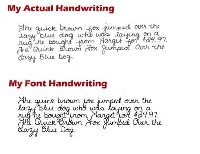 My Actual Handwriting
the quick brown fox jumped over the
lazy blue dog who was laying on a
rug he bought from Target for $24.97.
The Quick Brown Fox Jumped Over the
Lazy Blue Dog.
My Font Handwriting
the quick brown fox jumped over the
lazy blue dog who was laying on a
rug he bought from Target for $24.97.
The Quick Brown Fox Jumped Over the
Lazy Blue Dog.